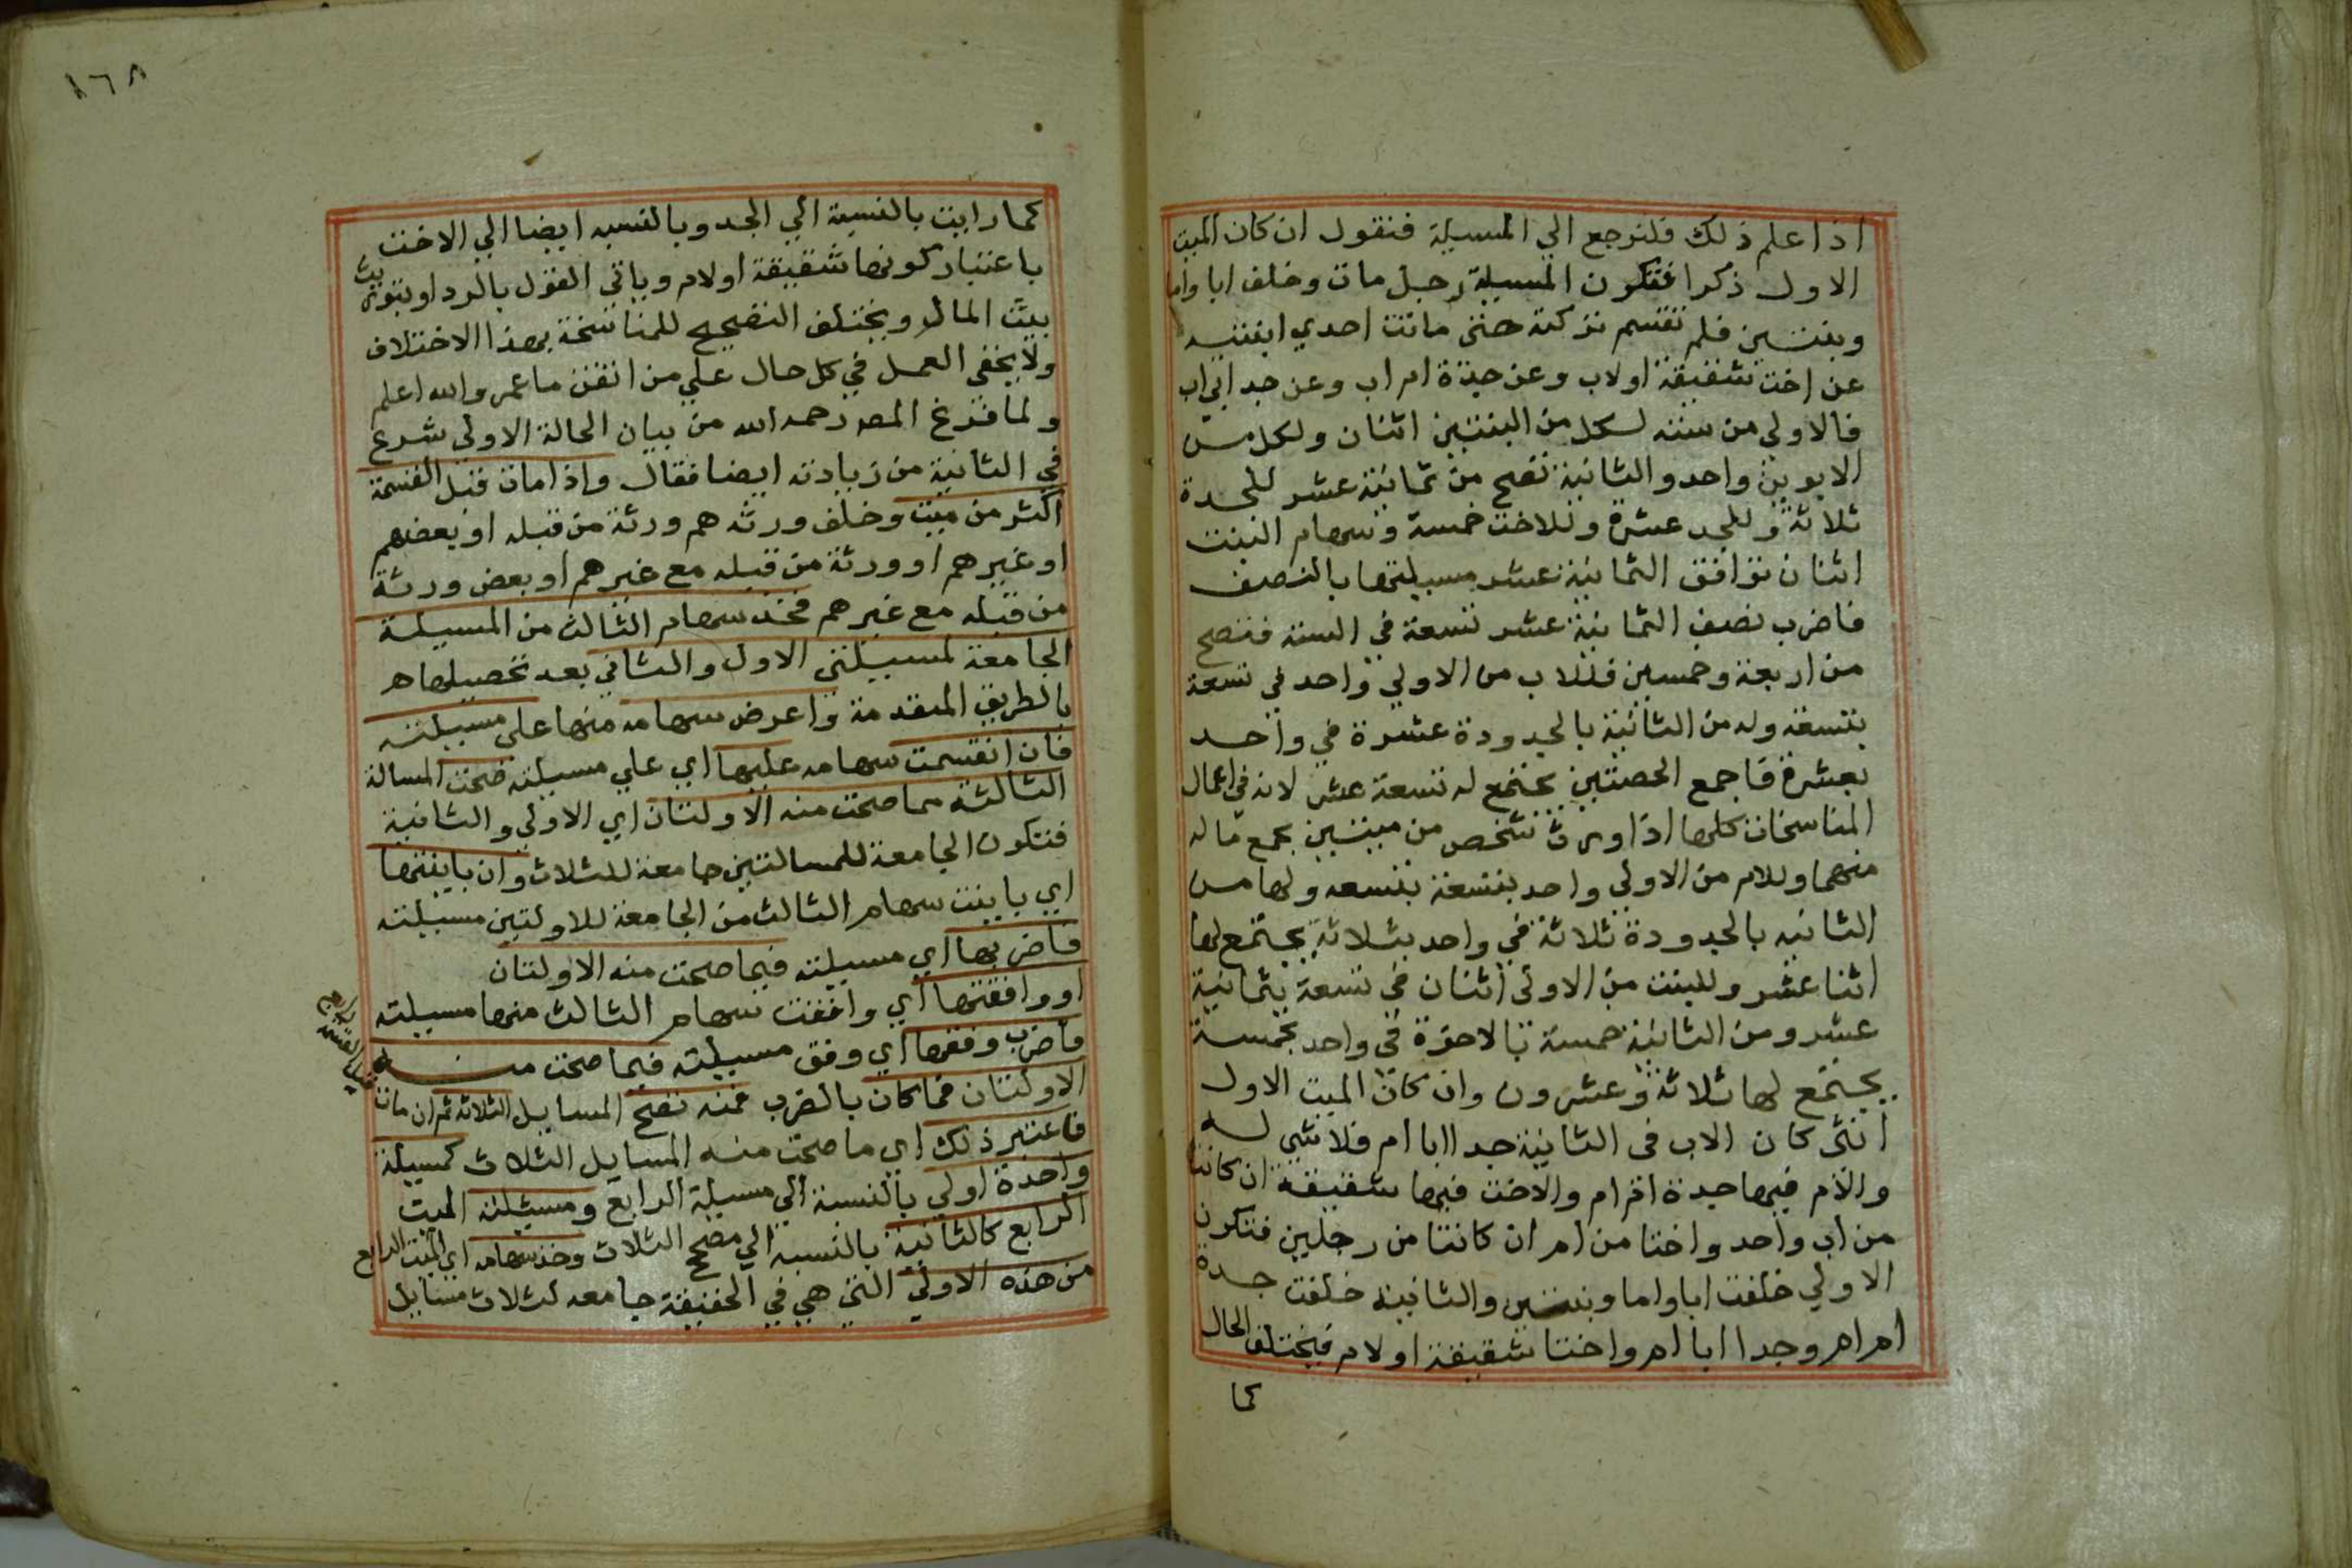 اذا علم ذلك فلنرجع الي المسيلة فنقول ان كان الميت
الاول ذكرا فتكون المسيلة رجل مات وخلف ابا واما
وبنتين فلم تقتسم تركته حتي ماتت احدي ابنتيه
عن اخت شقيقة اولاب وعن جدة ام اب وعن جد ابي اب
فالاولي من سته لكل من البنتين اثنان ولكل من
الابوين واحد والثانية تصح من ثمانية عشر للجدة
ثلاثة وللجد عشرة وللاخت خمسة وسهام البنت
اثنان توافق الثمانية عشر مسيلتها بالنصف
فاضرب نصف الثمانية عشر تسعة في الستة فتصح
من اربعة وخمسين فللاب من الاولي واحد في تسعة
بتسعة وله من الثانية بالجدودة عشرة في واحد
بعشرة فاجمع الحصتين يجتمع له تسعة عشر لانه في اعمال
المناسخات كلها اذا ورث شخص من ميتين يجمع ما له
منهما وللام من الاولي واحد بتسعة بتسعه ولها من
الثانيه بالجدودة ثلاثة في واحد بثلاثة يجتمع لها
اثنا عشر وللبنت من الاولي اثنان في تسعة بثمانية
عشر ومن الثانية خمسة بالاخوة في واحد بخمسة
يجتمع لها ثلاثة وعشرون وان كان الميت الاول
انثي كان الاب في الثانية جدا ابا ام فلا شي له
والام فيها جدة ام ام والاخت فيها شقيقة ان كانتا
من اب واحد واختا من ام ان كانتا من رجلين فتكون
الاولي خلفت ابا واما وبنتين والثانيه خلفت جدة
ام ام وجدا ابا ام واختا شقيقة اولام فيختلف الحال
كما
١٦٨
كما رايت بالنسبة الي الجد وبالنسبه ايضا الي الاخت
باعتبار كونها شقيقة اولام وياتي القول بالرد او بتوريث
بيت المال ويختلف التصحيح للمناسخة بهذا الاختلاف
ولا يخفي العمل في كل حال علي من اتقن ما مر والله اعلم
ولما فرغ المص رحمه الله من بيان الحالة الاولي شرع
في الثانية من زيادته ايضا فقال واذا مات قبل القسمة
اكثر من ميت وخلف ورثه هم ورثة من قبله او بعضهم
او غيرهم او ورثة من قبله مع غيرهم او بعض ورثة
من قبله مع غيرهم فخذ سهام الثالث من المسيلة
الجامعة لمسيلتي الاول والثاني بعد تحصيلها
بالطريق المتقدمة واعرض سهامه منها علي مسيلته
فان انقسمت سهامه عليها اي علي مسيلته صحت المسالة
الثالثة مما صحت منه الاولتان اي الاولي والثانية
فتكون الجامعة للمسالتين جامعة للثلاث وان باينتها
اي باينت سهام الثالث من الجامعة للاولتين مسيلته
فاضربها اي مسيلته فيما صحت منه الاولتان
او وافقتها اي وافقت سهام الثالث منها مسيلته
فاضرب وفقها اي وفق مسيلته فيما صحت منه
الاولتان فما كان بالضرب فمنه تصح المسايل الثلاثة ثم ان مات
فاعتبر ذلك اي ما صحت منه المسايل الثلاث كمسيلة
واحدة اولي بالنسبة الي مسيلة الرابع ومسيلته الميت
الرابع كالثانية بالنسبه الي مصحح الثلاث وخذ سهامه اي الميت الرابع
من هذه الاولي التي هي في الحقيقة جامعه لثلاث مسايل